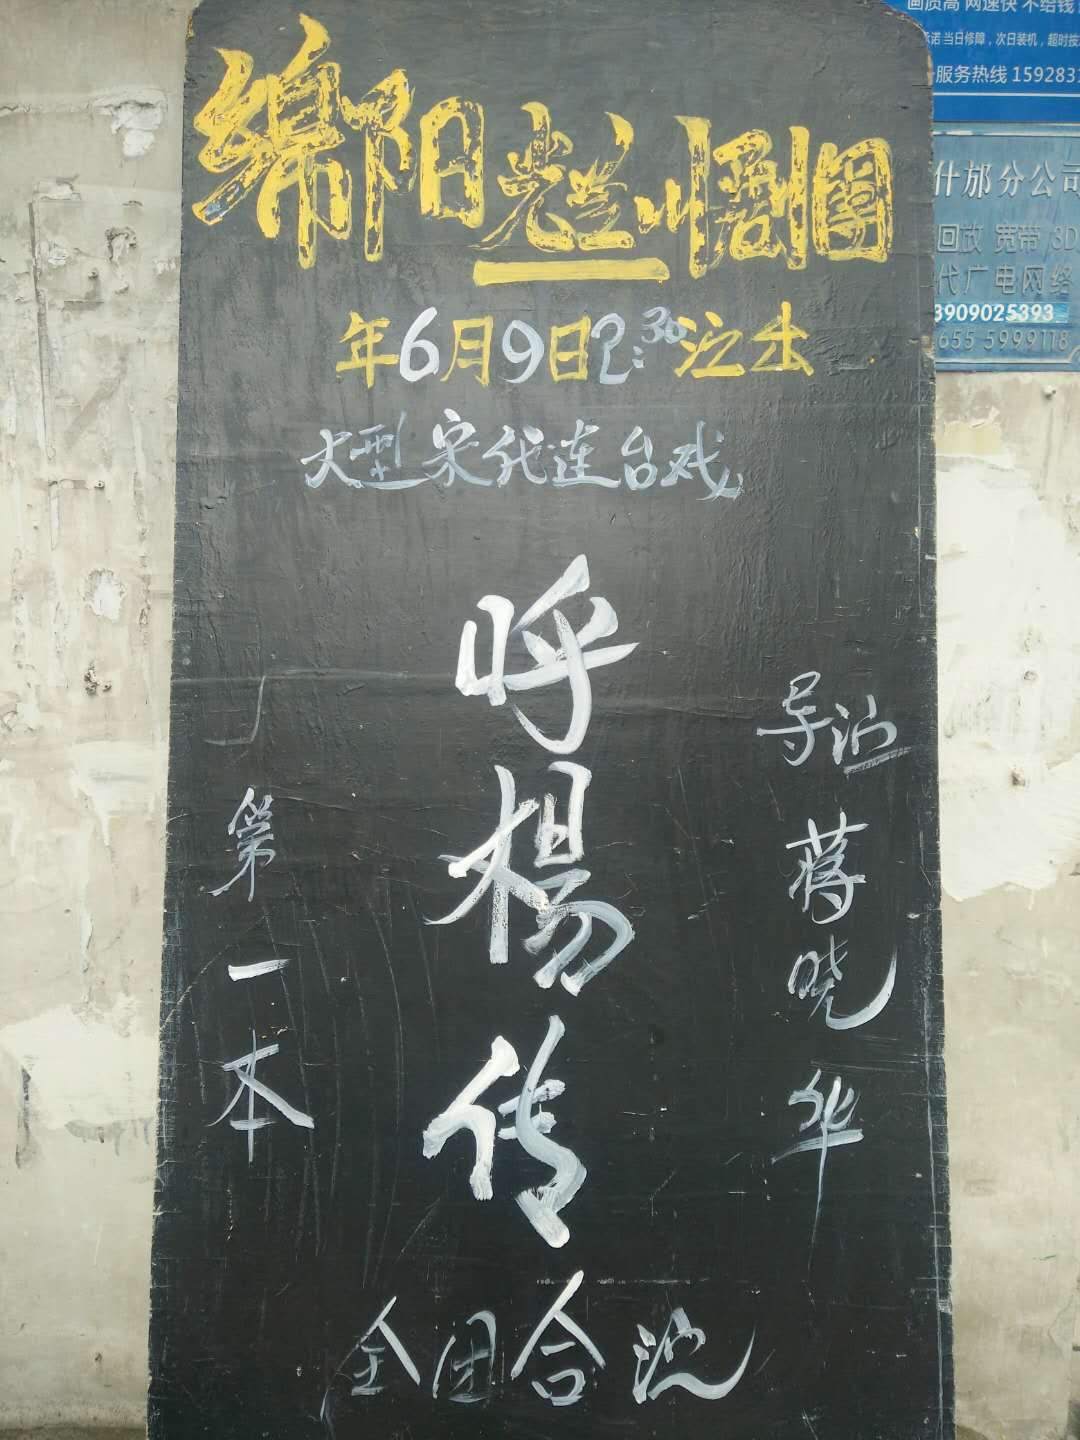 绵阳光兰川剧团
年6月9日2:30演出
大型宋代连台戏
呼杨传
导演 蒋晓华
第一本
全团合演
画质高 网速快 不给钱
当日修障，次日装机，超时按
服务热线 159283
什邡分公司
回放 宽带 3D
代广电网络
3909025393
655 5999118